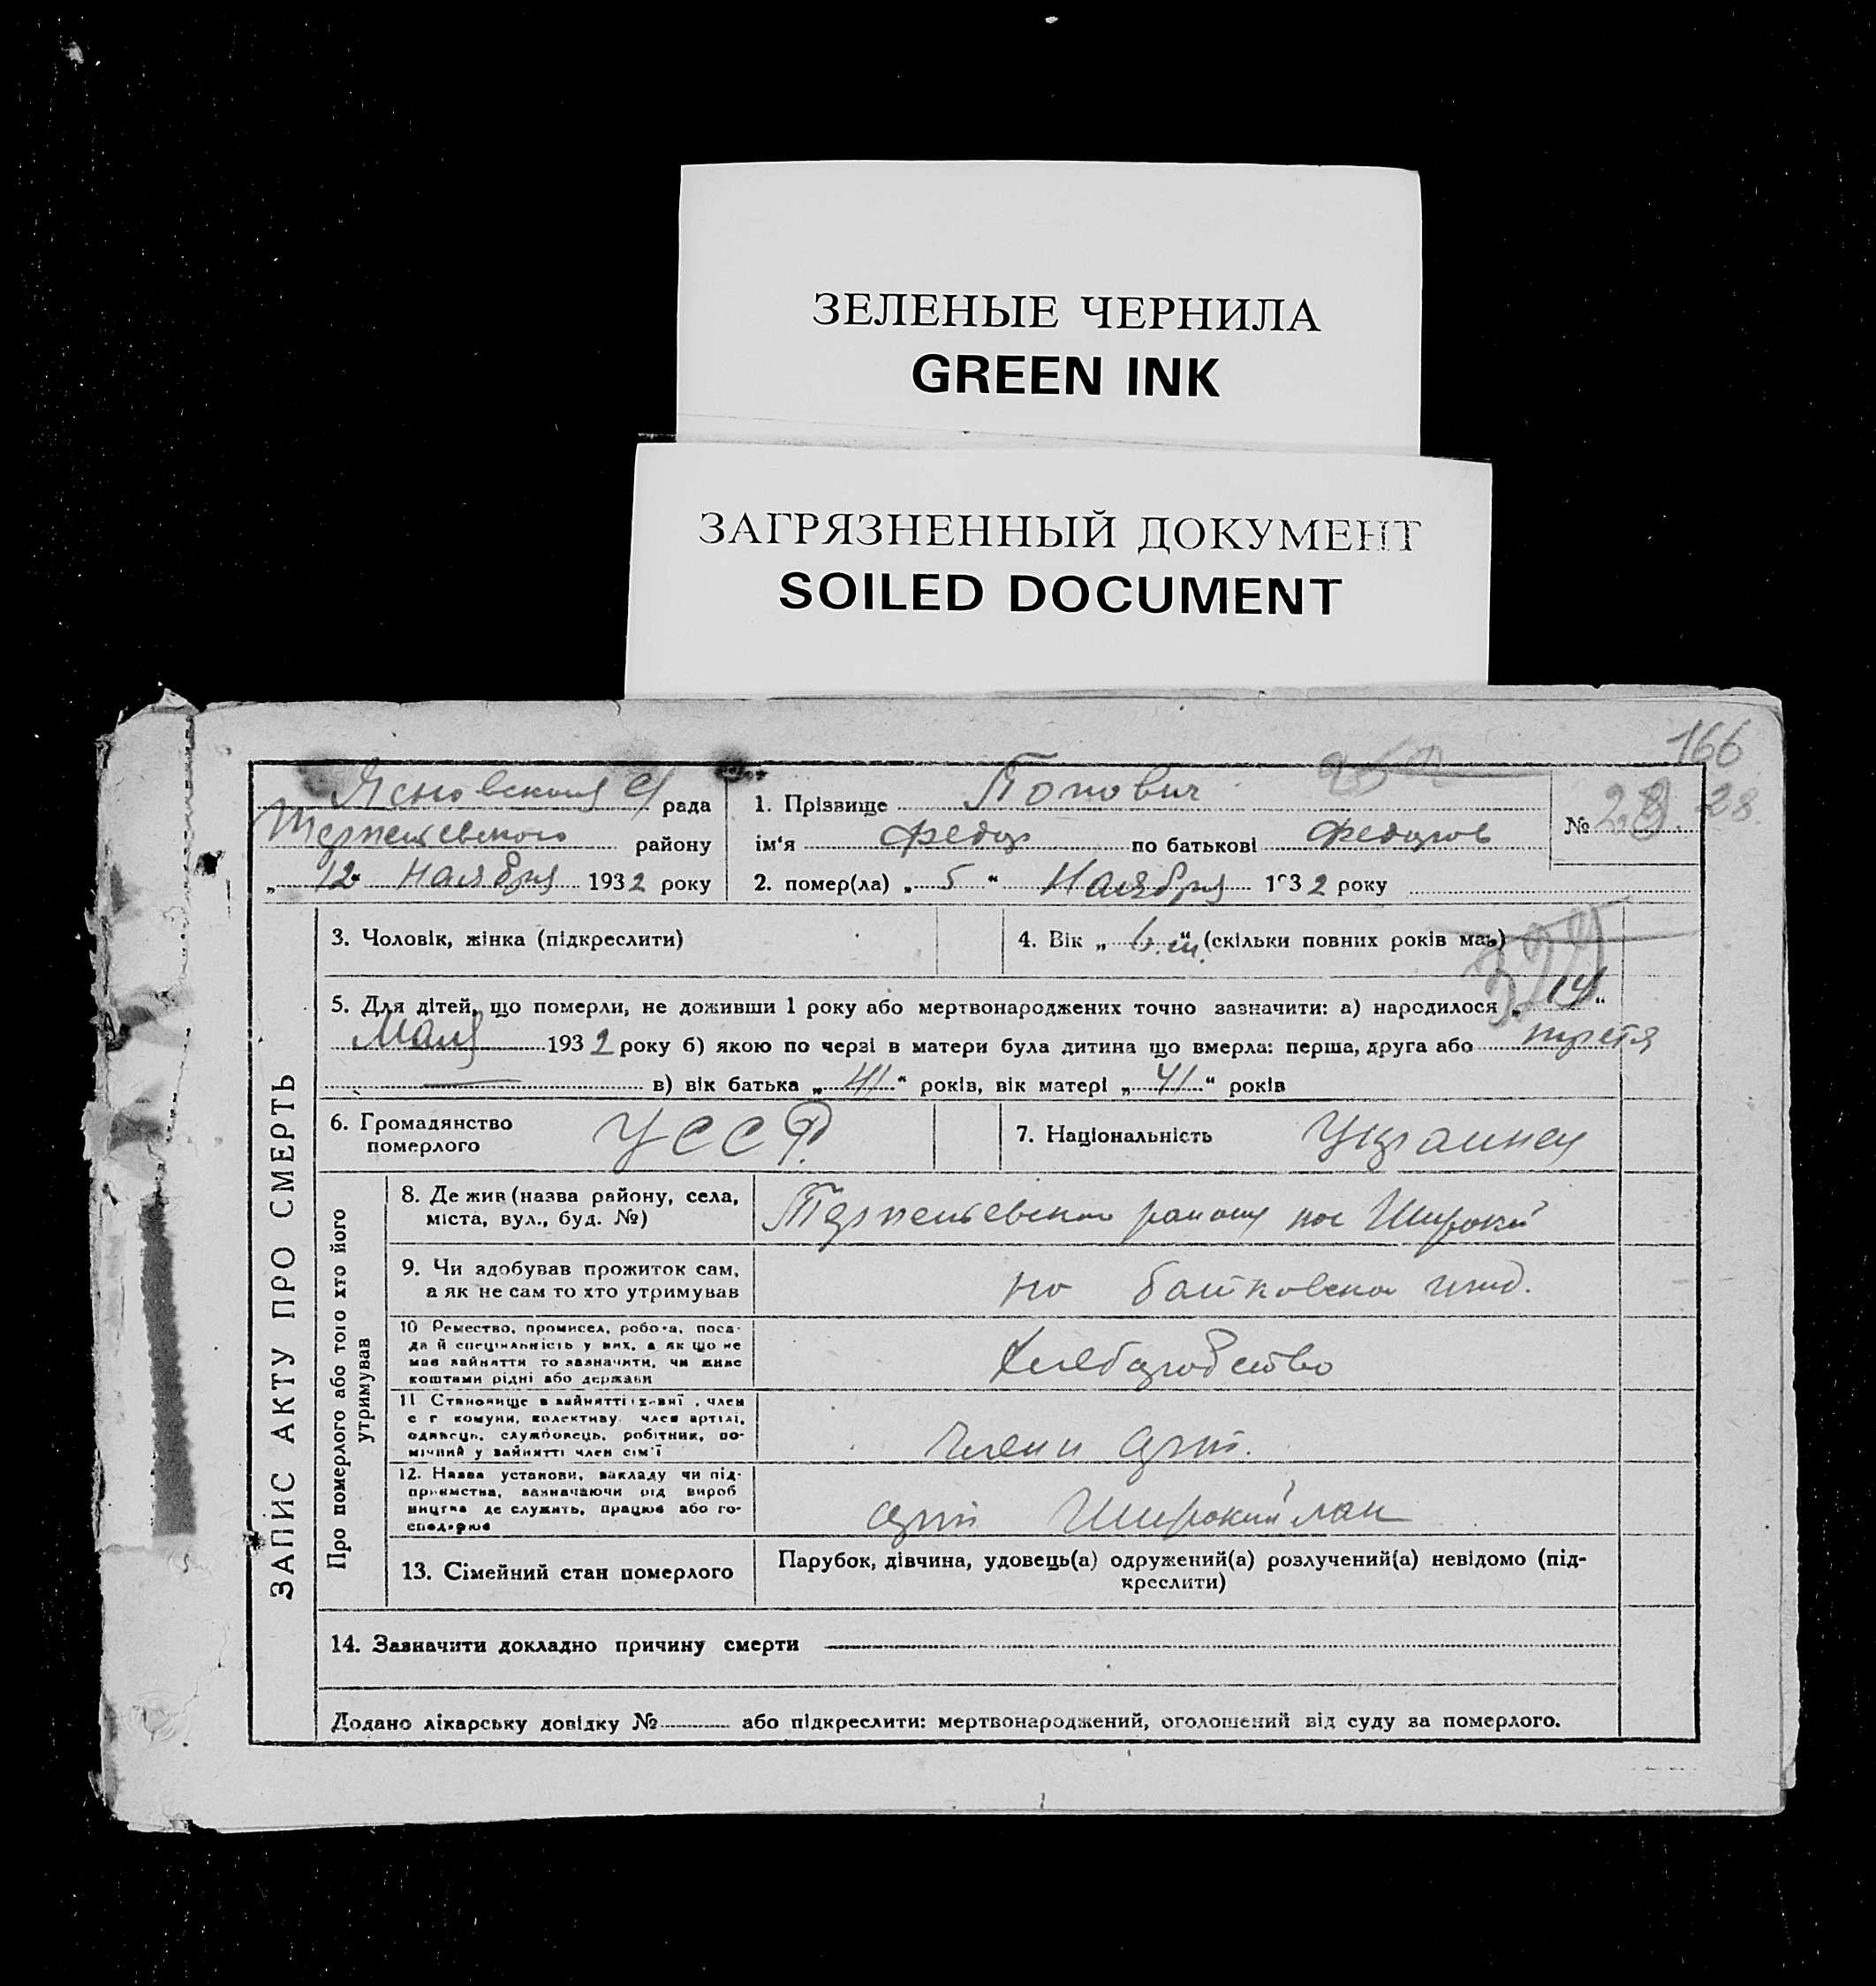 ЗЕЛЕНЫЕ ЧЕРНИЛА
GREEN INK
ЗАГРЯЗНЕННЫЙ ДОКУМЕНТ
SOILED DOCUMENT
166
рада
1. Прізвище Попович
№ 28 28
району
ім'я Федор по батькові Федоров
„ 12 Ноября 1932 року
2. помер(ла) „ 5 “ Ноября 1932 року
ЗАПИС АКТУ ПРО СМЕРТЬ
3. Чоловік, жінка (підкреслити)
4. Вік „ 6 м. “ (скільки повних років мав)
5. Для дітей, що померли, не доживши 1 року або мертвонароджених точно зазначити: а) народилося „ 14 “
Мая 1932 року б) якою по черзі в матери була дитина що вмерла: перша, друга або третя
в) вік батька „ 41 “ років, вік матері „ 41 “ років
6. Громадянство
померлого
УССР
7. Національність Украинец
Про померлого або того хто його
утримував
8. Де жив (назва району, села,
міста, вул., буд. №)
району пос Широкий
9. Чи здобував прожиток сам,
а як не сам то хто утримував
10 Ремество, промисел, робота, поса-
да й спеціяльність у них, а як що не
має зайняття то зазначити, чи живе
коштами рідні або держави
Хлебородство
11. Становище в зайнятті: член
с г комуни, колективу член артілі,
одинець, службовець, робітник, по-
мічний у зайнятті член сім'ї
члени арт.
12. Назва установи, закладу чи під-
приємства, зазначаючи рід вироб
ництва де служить, працює або го-
сподарює
арт Широкий лан
13. Сімейний стан померлого
Парубок, дівчина, удовець(а) одружений(а) розлучений(а) невідомо (під-
креслити)
14. Зазначити докладно причину смерти
Додано лікарську довідку № або підкреслити: мертвонароджений, оголошений від суду за померлого.